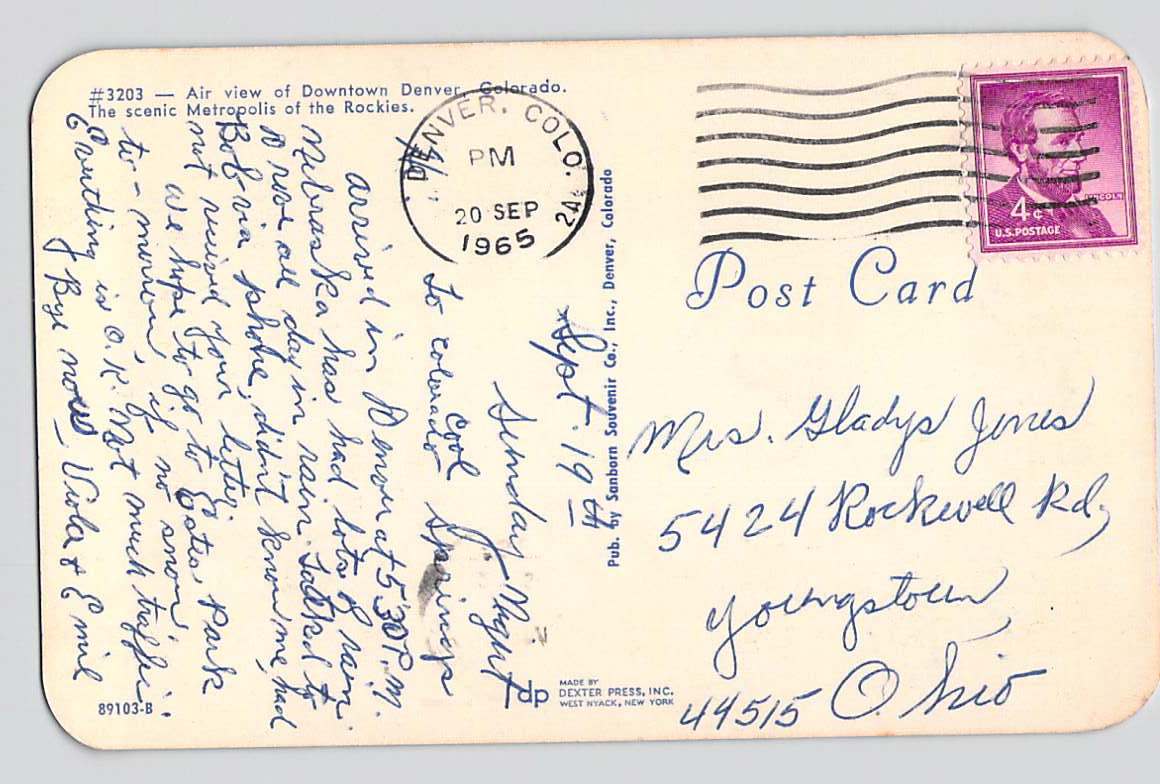 #3203 — Air view of Downtown Denver, Colorado.
The scenic Metropolis of the Rockies.
DENVER, COLO.
PM
20 SEP
1965
24
LINCOLN
4¢
U.S. POSTAGE
Post Card
Sept. 19th
Sunday Night
cool
To colorado Springs
arrived in Denver at 5:30 P.M.
Nebraska has had lots of rain.
Drove all day in rain. Talked to
Bob via phone, didn't know me, had
not received your letter
We hope to go to Estes Park
to-morrow, if no snow.
Everthing is O.K. Not much traffic.
Bye now_ Viola & Emil
Pub. by Sanborn Souvenir Co., Inc., Denver, Colorado
Mrs. Gladys Jones
5424 Rockwell Rd,
Youngstown
44515 Ohio
dp
MADE BY
DEXTER PRESS, INC.
WEST NYACK, NEW YORK
89103-B